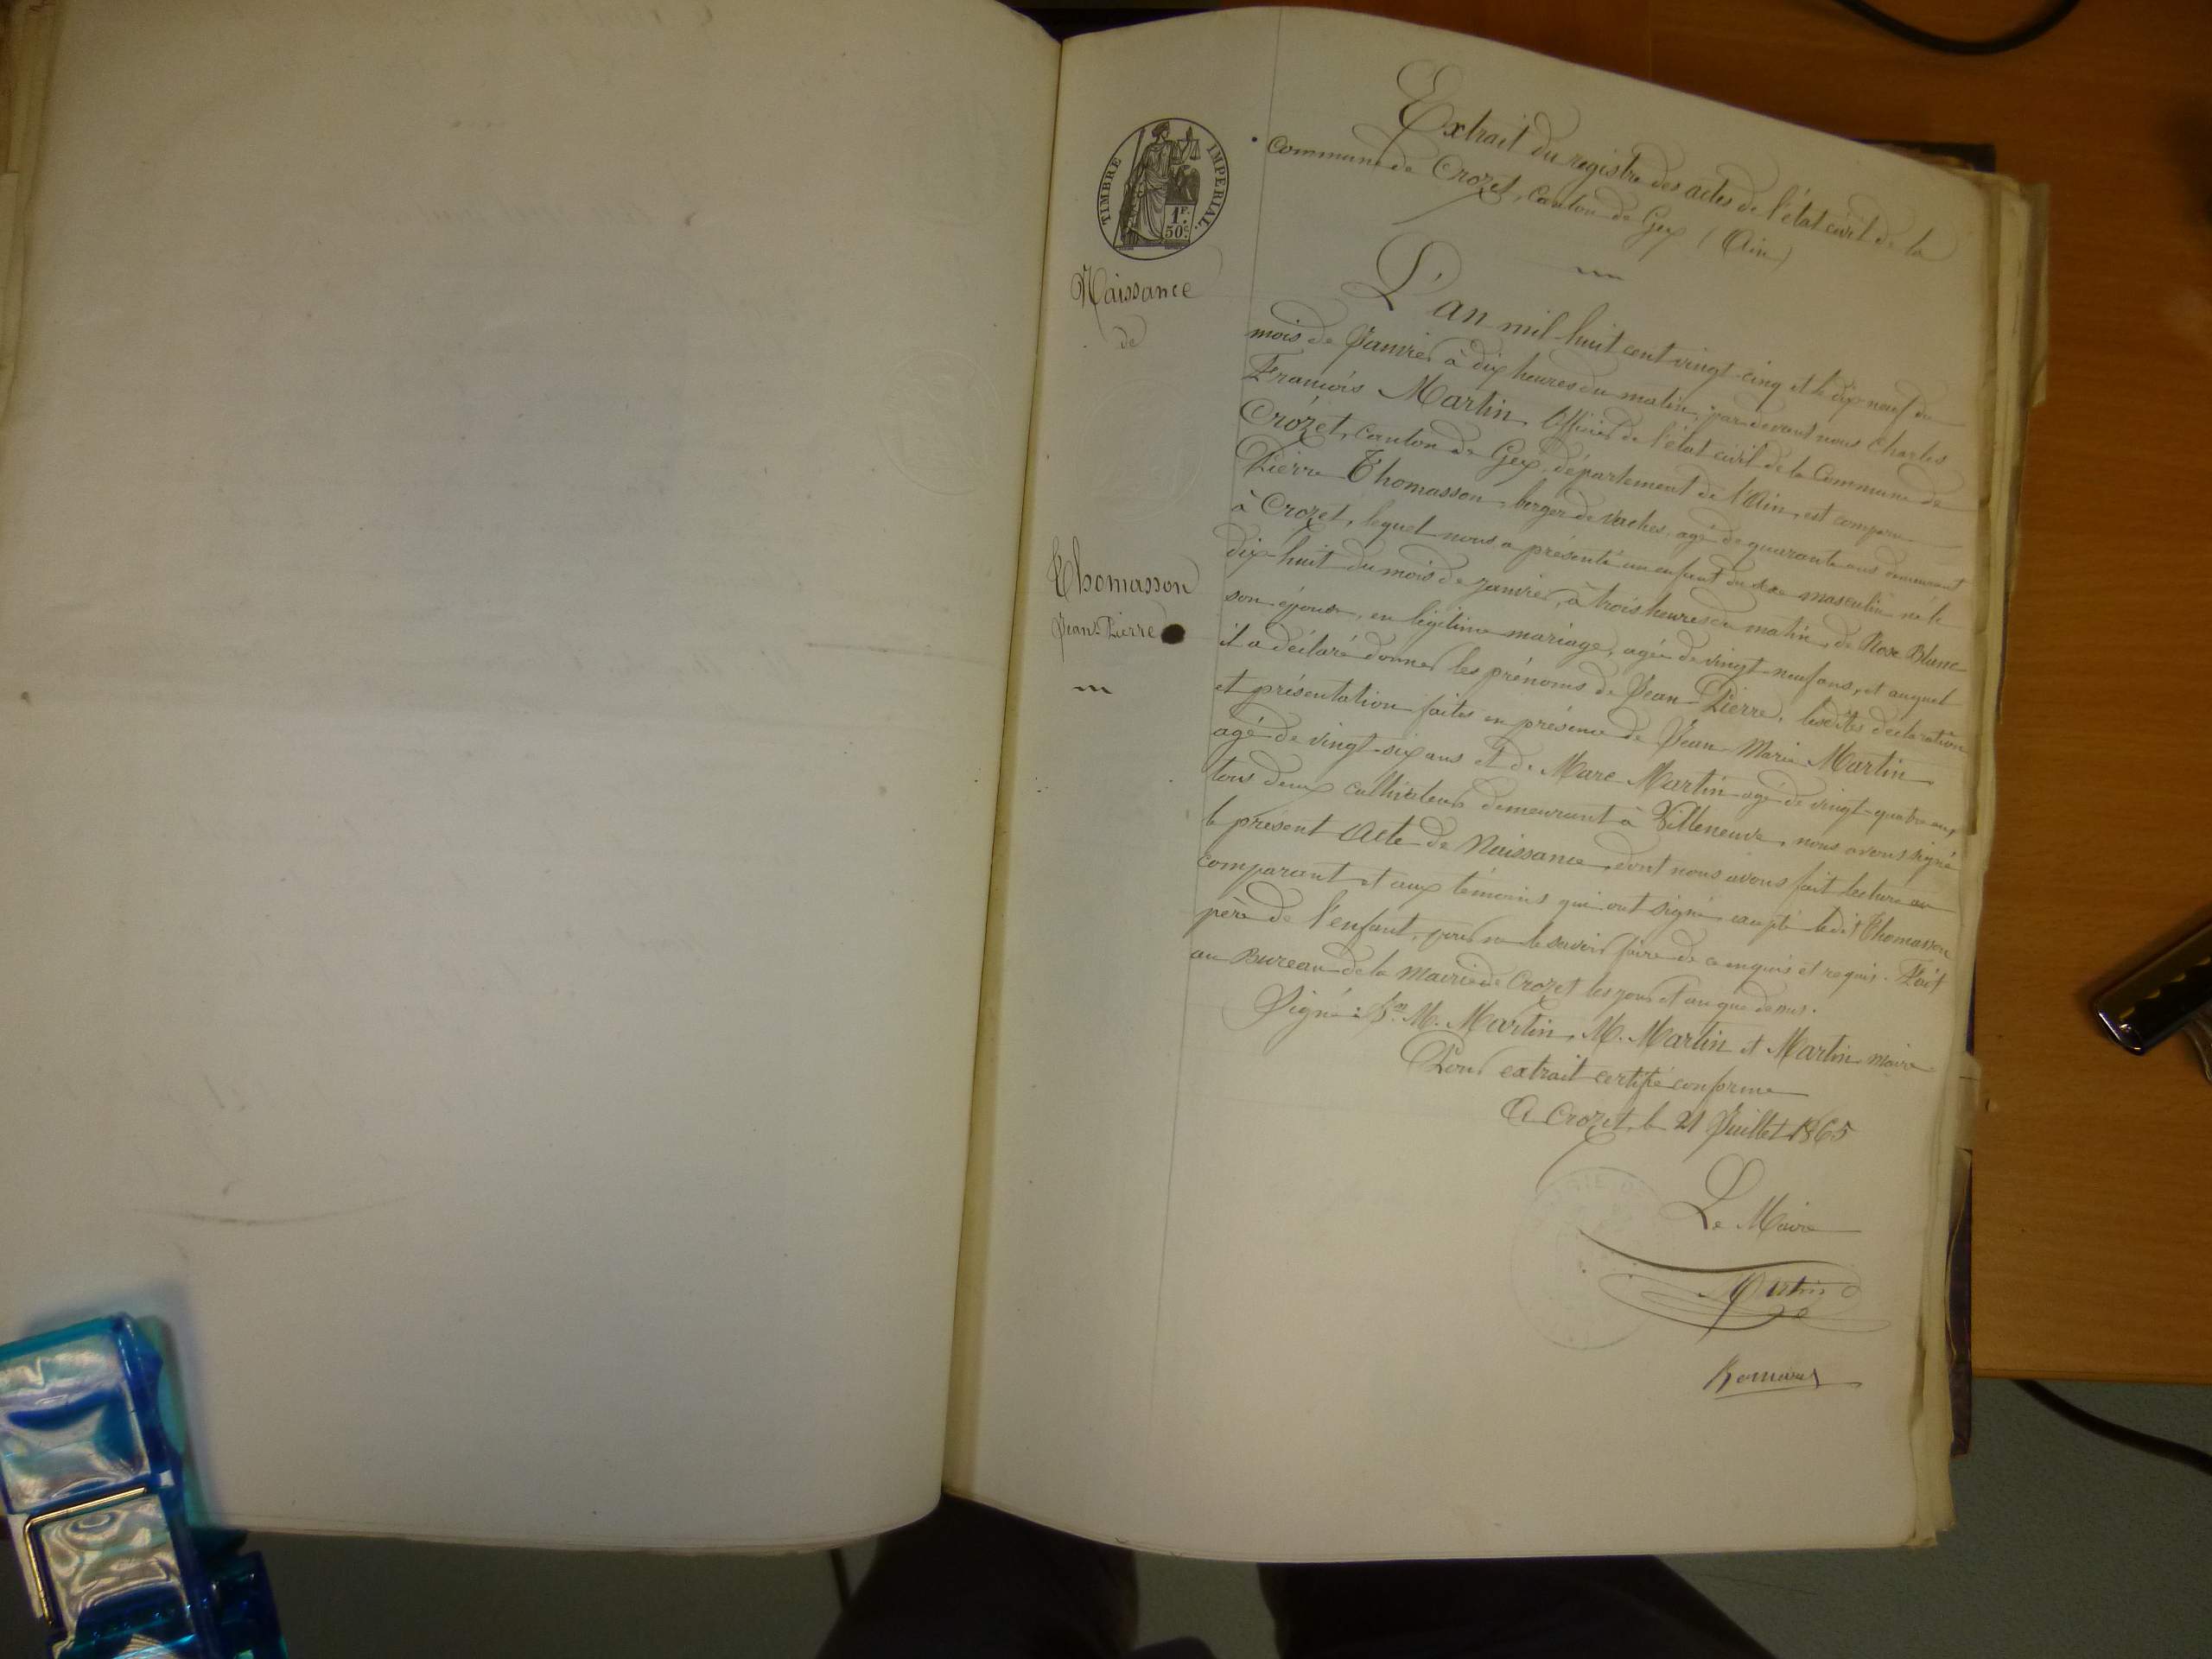 TIMBRE IMPERIAL.
1F.
50c.
Naissance
de
Thomasson
Jean-Pierre
Extrait du registre des actes de l'état civil de la
commune de Crozet, canton de Gex (Ain)
L'an mil huit cent vingt cinq et le dix-neuf du
mois de Janvier à dix heures du matin, par devant nous Charles
François Martin, Officier de l'état civil de la Commune de
Crozet, canton de Gex, département de l'Ain, est comparu
Pierre Thomasson, berger de vaches, agé de quarante ans demeurant
à Crozet, lequel nous a présenté un enfant du sexe masculin né le
dix-huit du mois de janvier, à trois heures du matin, de Rose Blanc
son épouse, en légitime mariage, agée de vingt-neuf ans, et auquel
il a déclaré donner les prénoms de Jean-Pierre, lesdites déclaration
et présentation faites en présence de Jean Marie Martin
agé de vingt-six ans et de Marc Martin agé de vingt-quatre ans,
tous deux cultivateurs demeurant à Villeneuve, nous avons signé
le présent Acte de Naissance, dont nous avons fait lecture au
comparant et aux témoins qui ont signé, excepté ledit Thomasson
père de l'enfant, pour ne le savoir faire de ce enquis et requis. Fait
au Bureau de la Mairie de Crozet les jour et an que dessus.
Signé: Jn M. Martin, M. Martin et Martin maire
Pour extrait certifié conforme
A Crozet, le 21 Juillet 1865
Le Maire
Martin